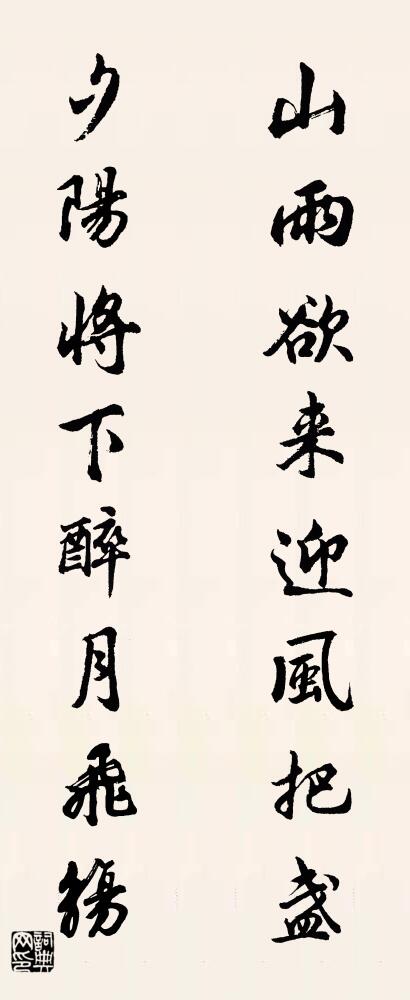 山雨欲来迎風把盞
夕陽将下醉月飛觴
詞典网印